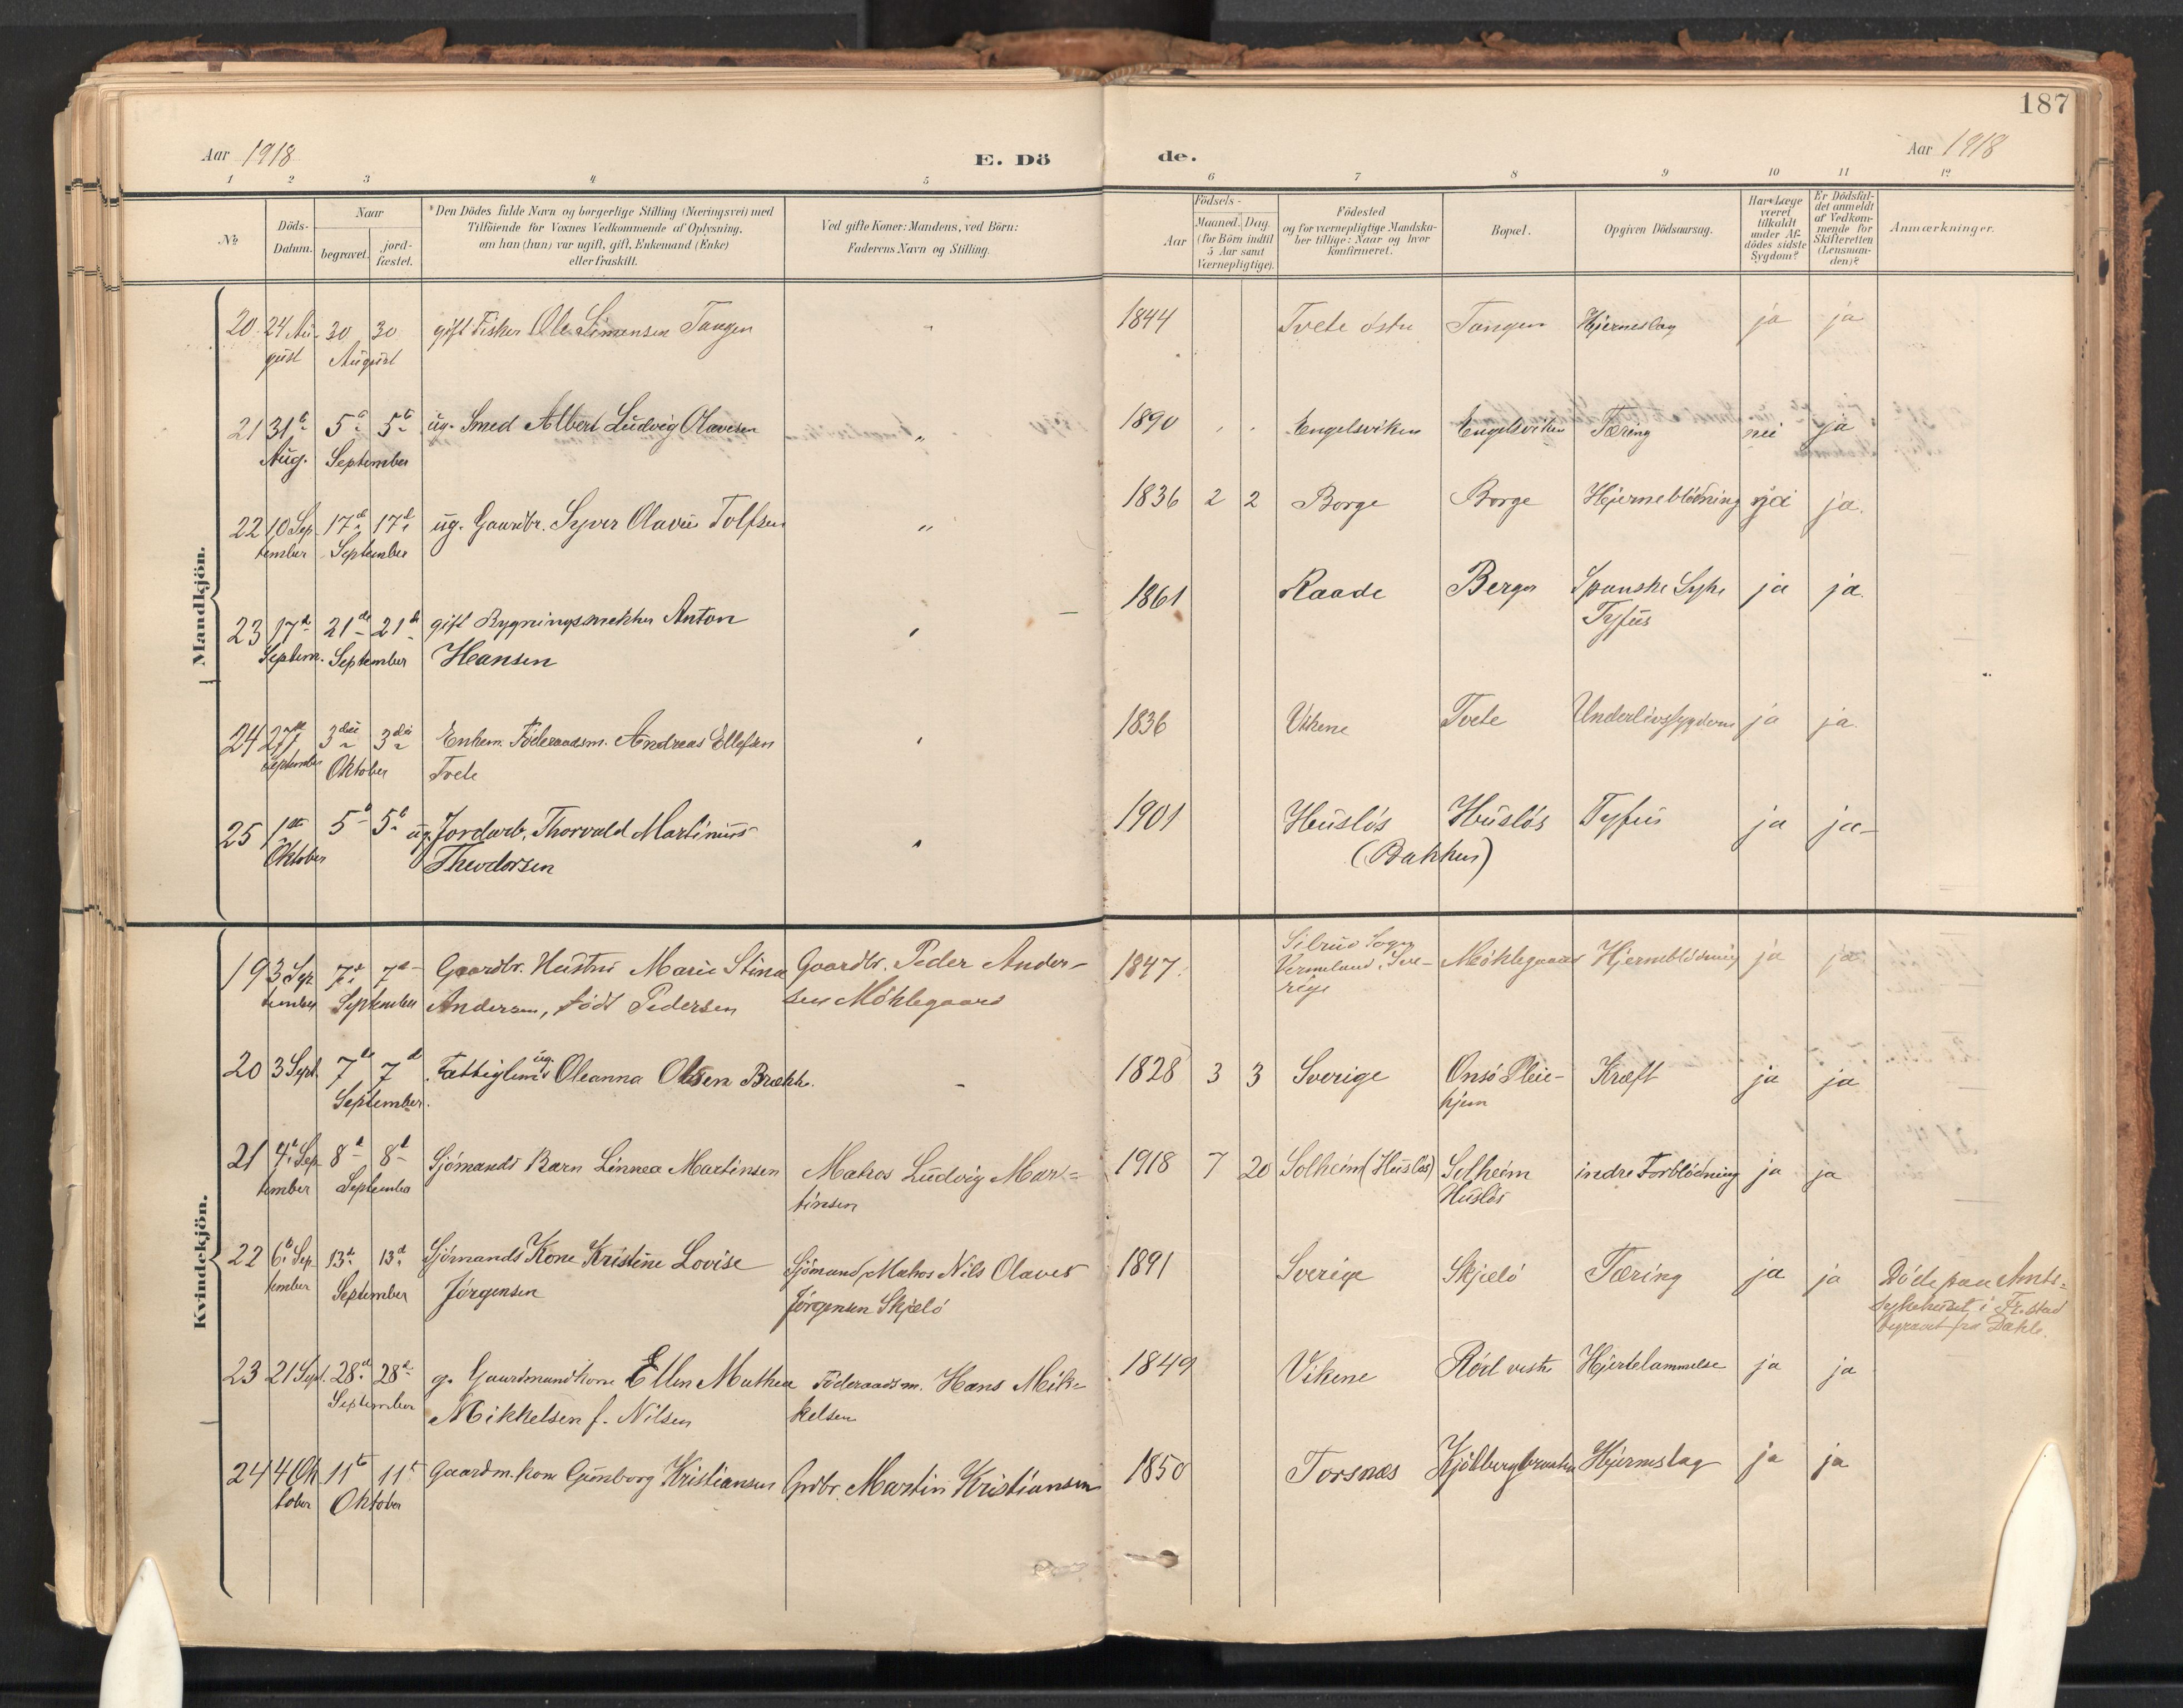 187
Aar 1918
E. Dö
de.
Aar 1918
1 2 3 4 5 6 7 8 9 10 11 12
№
Döds-
Datum.
Naar
begravet.
jord-
fæstet.
*Den Dödes fulde Navn og borgerlige Stilling (Næringsvei) med
Tilföiende for Voxnes Vedkommende af Oplysning,
om han (hun) var ugift, gift, Enkemand (Enke)
eller fraskilt.
Ved gifte Koner: Mandens, ved Börn:
Faderens Navn og Stilling.
Födsels-
Aar
Maaned. Dag.
(for Börn indtil
5 Aar samt
Værnepligtige).
Födested
og for værnepligtige Mandska-
ber tillige: Naar og hvor
konfirmeret.
Bopæl.
Opgiven Dödsaarsag.
Har Læge
været
tilkaldt
under Af-
dödes sidste
Sygdom?
Er Dödsfal-
det anmeldt
af Vedkom-
mende for
Skifteretten
(Lensman-
den)?
Anmærkninger.
Mandkjön.
20 24 Au- 30 30 gift Fisker Ole Simensen Tangen " 1844 Tvete östre Tangen Hjerneslag ja ja
gust August
21 31te 5te 5te ug. Smed Albert Ludvig Olavesen " 1890 Engelsviken Engelsviken Tæring nei ja
Aug. September
22 10 Sep 17de 17de ug. Gaardbr. Syver Olaves Tolfsen " 1836 2 2 Borge Borge Hjerneblödning ja ja.
tember September
23 17de 21de 21de gift Bygningssnekker Anton " 1861 Raade Berger Spanske Syke ja ja.
Septem. September Hansen Tyfus
24 27de 3die 3die Enkem. Föderaadsm. Andreas Ellefsen " 1836 Vikene Tvete Underlivssygdom ja ja.
September Oktober Tvete
25 1ste 5te 5te ug. Jordarb. Thorvald Martinius " 1901 Huslös Huslös Tyfus ja ja
Oktober Theodorsen (Bakken)
Kvindekjön.
19 3 Sep 7de 7de Gaardbr. Hustru Marie Stina Gaardbr. Peder Ander- 1847. Silbud Sogn Möklegaard Hjerneblödning ja ja
tember September Andersen, född Pedersen sen Möklegaard Vermeland, Sve-
rige
20 3 Sept. 7de 7de Fattiglem ug. Oleanna Olsen Brækk. - 1828 3 3 Sverige Onsö Pleie- Kræft ja ja
September. hjem
21 4de Sep 8de 8de Sjömands Barn Linnea Martinsen Matros Ludvig Mar- 1918 7 20 Solheim (Huslös) Solheim indre Forblödning ja ja
tember September tinsen Huslös
22 6te Sep 13de 13de Sjömands Kone Kristine Lovise Sjömand/Matros Nils Olaves 1891 Sverige Skjælö Tæring ja ja Döde paa Amts-
tember September Jörgensen Jörgensen Skjælö sykehuset i Fr.stad
begravet fra Dahle.
23 21 Sept. 28de 28de g. Gaardmandkone Ellen Mathea Föderaadsm. Hans Mik- 1849 Vikene Röd vestre Hjertelammelse ja ja
September Mikkelsen f. Nilsen kelsen
24 4 Ok 11te 11te Gaardm. kone Gunborg Kristiansen Grdbr. Martin Kristiansen 1850 Torsnæs Kjölbergbraaten Hjerneslag ja ja
tober Oktober